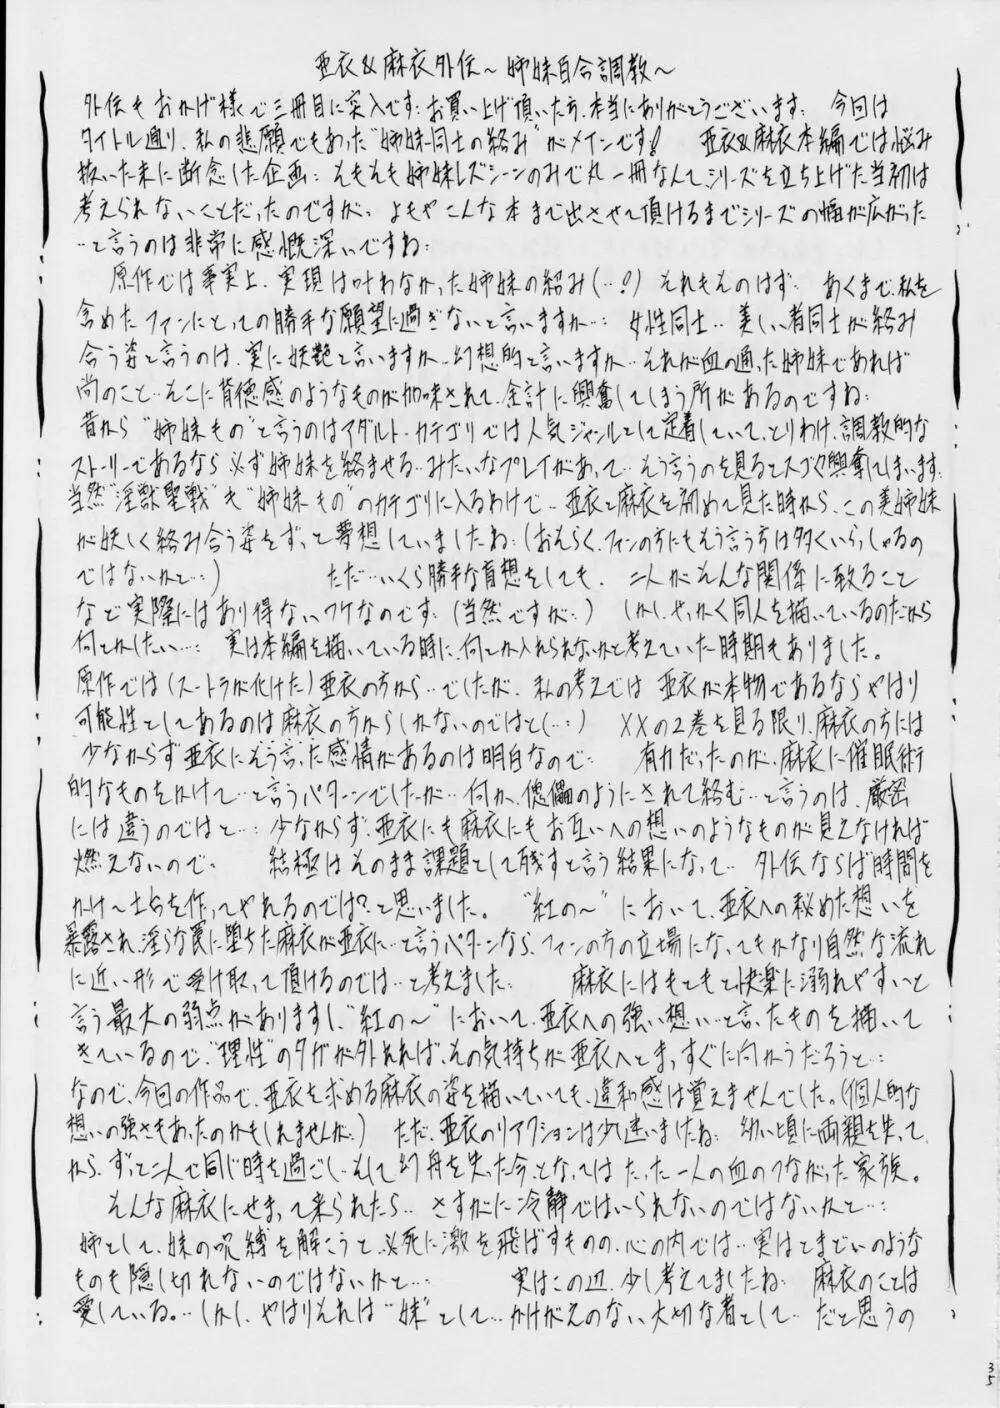 亜衣&麻衣外伝～姉妹百合調教～
外伝もおかげ様で三冊目に突入です… お買い上げ頂いた方、本当にありがとうございます… 今回は
タイトル通り、私の悲願でもあった“姉妹同士の絡み”がメインです! 亜衣&麻衣本編では悩み
抜いた末に断念した企画… そもそも姉妹レズシーンのみで丸一冊なんてシリーズを立ち上げた当初は
考えられないことだったのですが… よもやこんな本まで出させて頂けるまでシリーズの幅が広がった
…と言うのは非常に感慨深いですね…
原作では事実上、実現は叶わなかった姉妹の絡み(…!) それもそのはず… あくまで、私を
含めたファンにとっての勝手な願望に過ぎないと言いますか…… 女性同士… 美しい者同士が絡み
合う姿と言うのは、実に妖艶と言いますか…幻想的と言いますか… それが血の通った姉妹であれば
尚のこと…そこに背徳感のようなものが加味されて、余計に興奮してしまう所があるのですね…
昔から“姉妹もの”と言うのはアダルト・カテゴリでは人気ジャンルとして定着していて、とりわけ、調教的な
ストーリーであるなら必ず姉妹を絡ませる…みたいなプレイがあって… そう言うのを見るとスゴク興奮してしまいます…
当然“淫獣聖戦”も“姉妹もの”のカテゴリに入るわけで… 亜衣と麻衣を初めて見た時から、この美姉妹
が妖しく絡み合う姿をずっと夢想していましたね…(おそらく、ファンの方にもそう言う方は多くいらっしゃるの
ではないかと…) ただ…いくら勝手な妄想をしても、二人がそんな関係に至ること
など実際にはあり得ないワケなのです…(当然ですが…) しかし、せっかく同人を描いているのだから
何とかしたい…… 実は本編を描いている時に、何とか入れられないかと考えていた時期もありました。
原作では(スートラが化けた)亜衣の方から…でしたが、私の考えでは 亜衣が本物であるならやはり
可能性としてあるのは麻衣の方からしかないのではと(…) XXの2巻を見る限り、麻衣の方には
少なからず亜衣にそう言った感情があるのは明白なので… 有力だったのが、麻衣に催眠術
的なものをかけて…と言うパターンでしたが… 何か、傀儡のようにされて絡む…と言うのは、厳密
には違うのではと… 少なからず、亜衣にも麻衣にもお互いへの想いのようなものが見えなければ
燃えないので… 結極はそのまま課題として残すと言う結果になって… 外伝ならば時間を
かけ～土台を作ってやれるのでは?と思いました。 “紅の～”において、亜衣への秘めた想いを
暴露され、淫らな罠に堕ちた麻衣が亜衣に…と言うパターンなら、ファンの方の立場になってもかなり自然な流れ
に近い形で受け取って頂けるのでは…と考えました… 麻衣にはもともと快楽に溺れやすいと
言う最大の弱点がありますし、“紅の～”において、亜衣への強い想い…と言ったものを描いて
きているので、“理性”のタガが外れれば、その気持ちが亜衣へとまっすぐに向かうだろうと……
なので、今回の作品で、亜衣を求める麻衣の姿を描いていても、違和感は覚えませんでした。(個人的な
想いの強さもあったのかもしれませんが…) ただ、亜衣のリアクションは少し迷いましたね… 幼い頃に両親を失って
から、ずっと二人で同じ時を過ごし…そして幻舟を失った今となっては たった一人の血のつながった家族。
そんな麻衣にせまって来られたら… さすがに冷静ではいられないのではないかと……
姉として、妹の呪縛を解こうと必死に激を飛ばすものの、心の内では… 実はとまどいのような
ものも隠し切れないのではないかと…… 実はこの辺、少し考えてましたね… 麻衣のことは
愛している… しかし、やはりそれは“妹”として…かけがえのない大切な者として… だと思うの
35